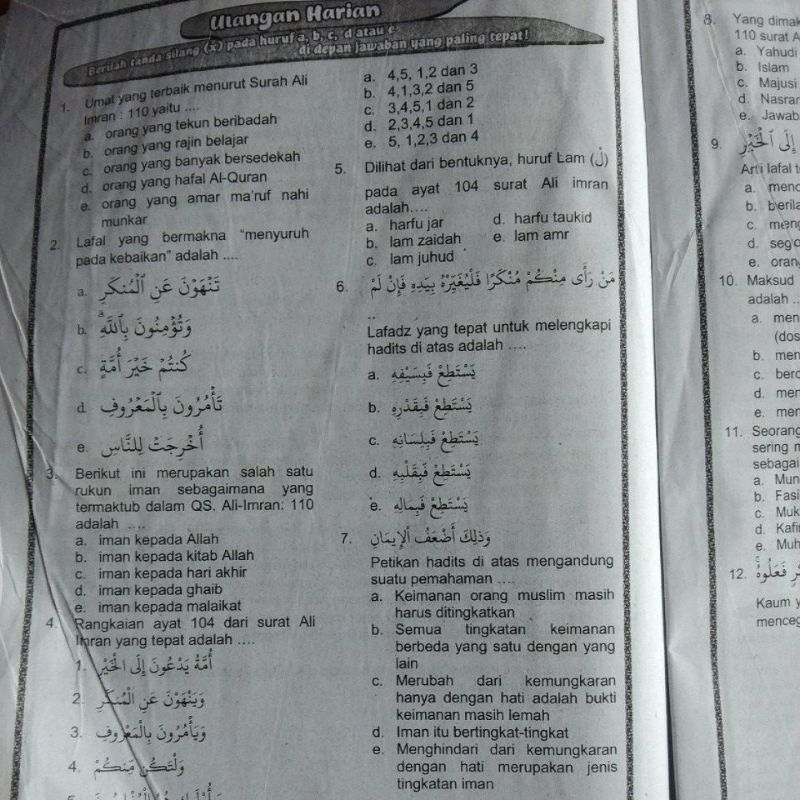 Ulangan Harian
Berilah tanda silang (x) pada huruf a, b, c, d atau e
di depan jawaban yang paling tepat!
1. Umat yang terbaik menurut Surah Ali
Imran : 110 yaitu ....
a. orang yang tekun beribadah
b. orang yang rajin belajar
c. orang yang banyak bersedekah
d. orang yang hafal Al-Quran
e. orang yang amar ma'ruf nahi
munkar
2. Lafal yang bermakna "menyuruh
pada kebaikan" adalah ....
a. تَنْهَوْنَ عَنِ ٱلْمُنكَرِ
b. وَتُؤْمِنُونَ بِٱللَّهِ
c. كُنتُمْ خَيْرَ أُمَّةٍ
d. تَأْمُرُونَ بِٱلْمَعْرُوفِ
e. أُخْرِجَتْ لِلنَّاسِ
3. Berikut ini merupakan salah satu
rukun iman sebagaimana yang
termaktub dalam QS. Ali-Imran: 110
adalah ....
a. iman kepada Allah
b. iman kepada kitab Allah
c. iman kepada hari akhir
d. iman kepada ghaib
e. iman kepada malaikat
4. Rangkaian ayat 104 dari surat Ali
Imran yang tepat adalah ....
1. أُمَّةٌ يَدْعُونَ إِلَى الْخَيْرِ
2. وَيَنْهَوْنَ عَنِ الْمُنكَرِ
3. وَيَأْمُرُونَ بِالْمَعْرُوفِ
4. وَلْتَكُن مِنكُمْ
a. 4,5, 1,2 dan 3
b. 4,1,3,2 dan 5
c. 3,4,5,1 dan 2
d. 2,3,4,5 dan 1
e. 5, 1,2,3 dan 4
5. Dilihat dari bentuknya, huruf Lam (لْ)
pada ayat 104 surat Ali imran
adalah....
a. harfu jar d. harfu taukid
b. lam zaidah e. lam amr
c. lam juhud
6. مَنْ رَأَى مِنْكُمْ مُنْكَرًا فَلْيُغَيِّرْهُ بِيَدِهِ فَإِنْ لَمْ
..
Lafadz yang tepat untuk melengkapi
hadits di atas adalah ....
a. يَسْتَطِعْ فَبِسَيْفِهِ
b. يَسْتَطِعْ فَبِقَدْرِهِ
c. يَسْتَطِعْ فَبِلِسَانِهِ
d. يَسْتَطِعْ فَبِقَلْبِهِ
e. يَسْتَطِعْ فَبِمَالِهِ
7. وَذَلِكَ أَضْعَفُ الْإِيمَانِ
Petikan hadits di atas mengandung
suatu pemahaman ....
a. Keimanan orang muslim masih
harus ditingkatkan
b. Semua tingkatan keimanan
berbeda yang satu dengan yang
lain
c. Merubah dari kemungkaran
hanya dengan hati adalah bukti
keimanan masih lemah
d. Iman itu bertingkat-tingkat
e. Menghindari dari kemungkaran
dengan hati merupakan jenis
tingkatan iman
8. Yang
110 surat
a. Yahudi
b. Islam
c. Majusi
d.
e.
9. إِلَى الْخَيْرِ
Arti lafal
a.
b.
c.
d.
e.
10. Maksud
adalah ..
a.
b.
c.
d.
e.
11.
sering
a.
b.
c.
d.
e.
12. فَعَلُوهُ
Kaum